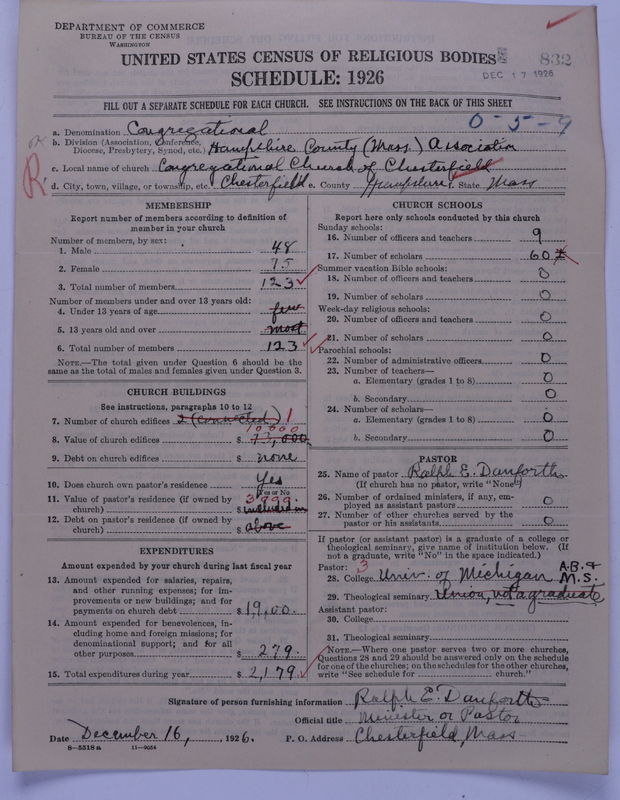 DEPARTMENT OF COMMERCE
BUREAU OF THE CENSUS
WASHINGTON
UNITED STATES CENSUS OF RELIGIOUS BODIES
SCHEDULE: 1926
DEC 17 1926
832
FILL OUT A SEPARATE SCHEDULE FOR EACH CHURCH. SEE INSTRUCTIONS ON THE BACK OF THIS SHEET
0-5-9
a. Denomination Congregational
b. Division (Association, Conference, Diocese, Presbytery, Synod, etc.) Hampshire County (Mass.) Association
c. Local name of church Congregational Church of Chesterfield
R
d. City, town, village, or township, etc. Chesterfield e. County Hampshire f. State Mass
MEMBERSHIP
Report number of members according to definition of
member in your church
Number of members, by sex:
1. Male 48
2. Female 75
3. Total number of members 123
Number of members under and over 13 years old:
4. Under 13 years of age few
5. 13 years old and over most
6. Total number of members 123
NOTE.—The total given under Question 6 should be the
same as the total of males and females given under Question 3.
CHURCH BUILDINGS
See instructions, paragraphs 10 to 12
7. Number of church edifices 2 (connected) 1
10,000
8. Value of church edifices $ 13,000
9. Debt on church edifices $ none
10. Does church own pastor's residence Yes
Yes or No
11. Value of pastor's residence (if owned by 3000
church) $ included in
12. Debt on pastor's residence (if owned by
church) $ above
EXPENDITURES
Amount expended by your church during last fiscal year
13. Amount expended for salaries, repairs,
and other running expenses; for im-
provements or new buildings; and for
payments on church debt $ 1900.
14. Amount expended for benevolences, in-
cluding home and foreign missions; for
denominational support; and for all
other purposes $ 279
15. Total expenditures during year $ 2,179
CHURCH SCHOOLS
Report here only schools conducted by this church
Sunday schools:
16. Number of officers and teachers 9
17. Number of scholars 60
Summer vacation Bible schools:
18. Number of officers and teachers 0
19. Number of scholars 0
Week-day religious schools:
20. Number of officers and teachers 0
21. Number of scholars 0
Parochial schools:
22. Number of administrative officers 0
23. Number of teachers—
a. Elementary (grades 1 to 8) 0
b. Secondary 0
24. Number of scholars—
a. Elementary (grades 1 to 8) 0
b. Secondary 0
PASTOR
25. Name of pastor Ralph E. Danforth
(If church has no pastor, write "None")
26. Number of ordained ministers, if any, em-
ployed as assistant pastors 0
27. Number of other churches served by the
pastor or his assistants 0
If pastor (or assistant pastor) is a graduate of a college or
theological seminary, give name of institution below. (If
not a graduate, write "No" in the space indicated.)
Pastor: 3
28. College Univ. of Michigan A.B. & M.S.
29. Theological seminary Union, not a graduate
Assistant pastor:
30. College
31. Theological seminary
NOTE.—Where one pastor serves two or more churches,
Questions 28 and 29 should be answered only on the schedule
for one of the churches; on the schedules for the other churches,
write "See schedule for church."
Signature of person furnishing information Ralph E. Danforth
Official title Minister or Pastor
Date December 16, 1926. P. O. Address Chesterfield, Mass
8—5518a 11—9054